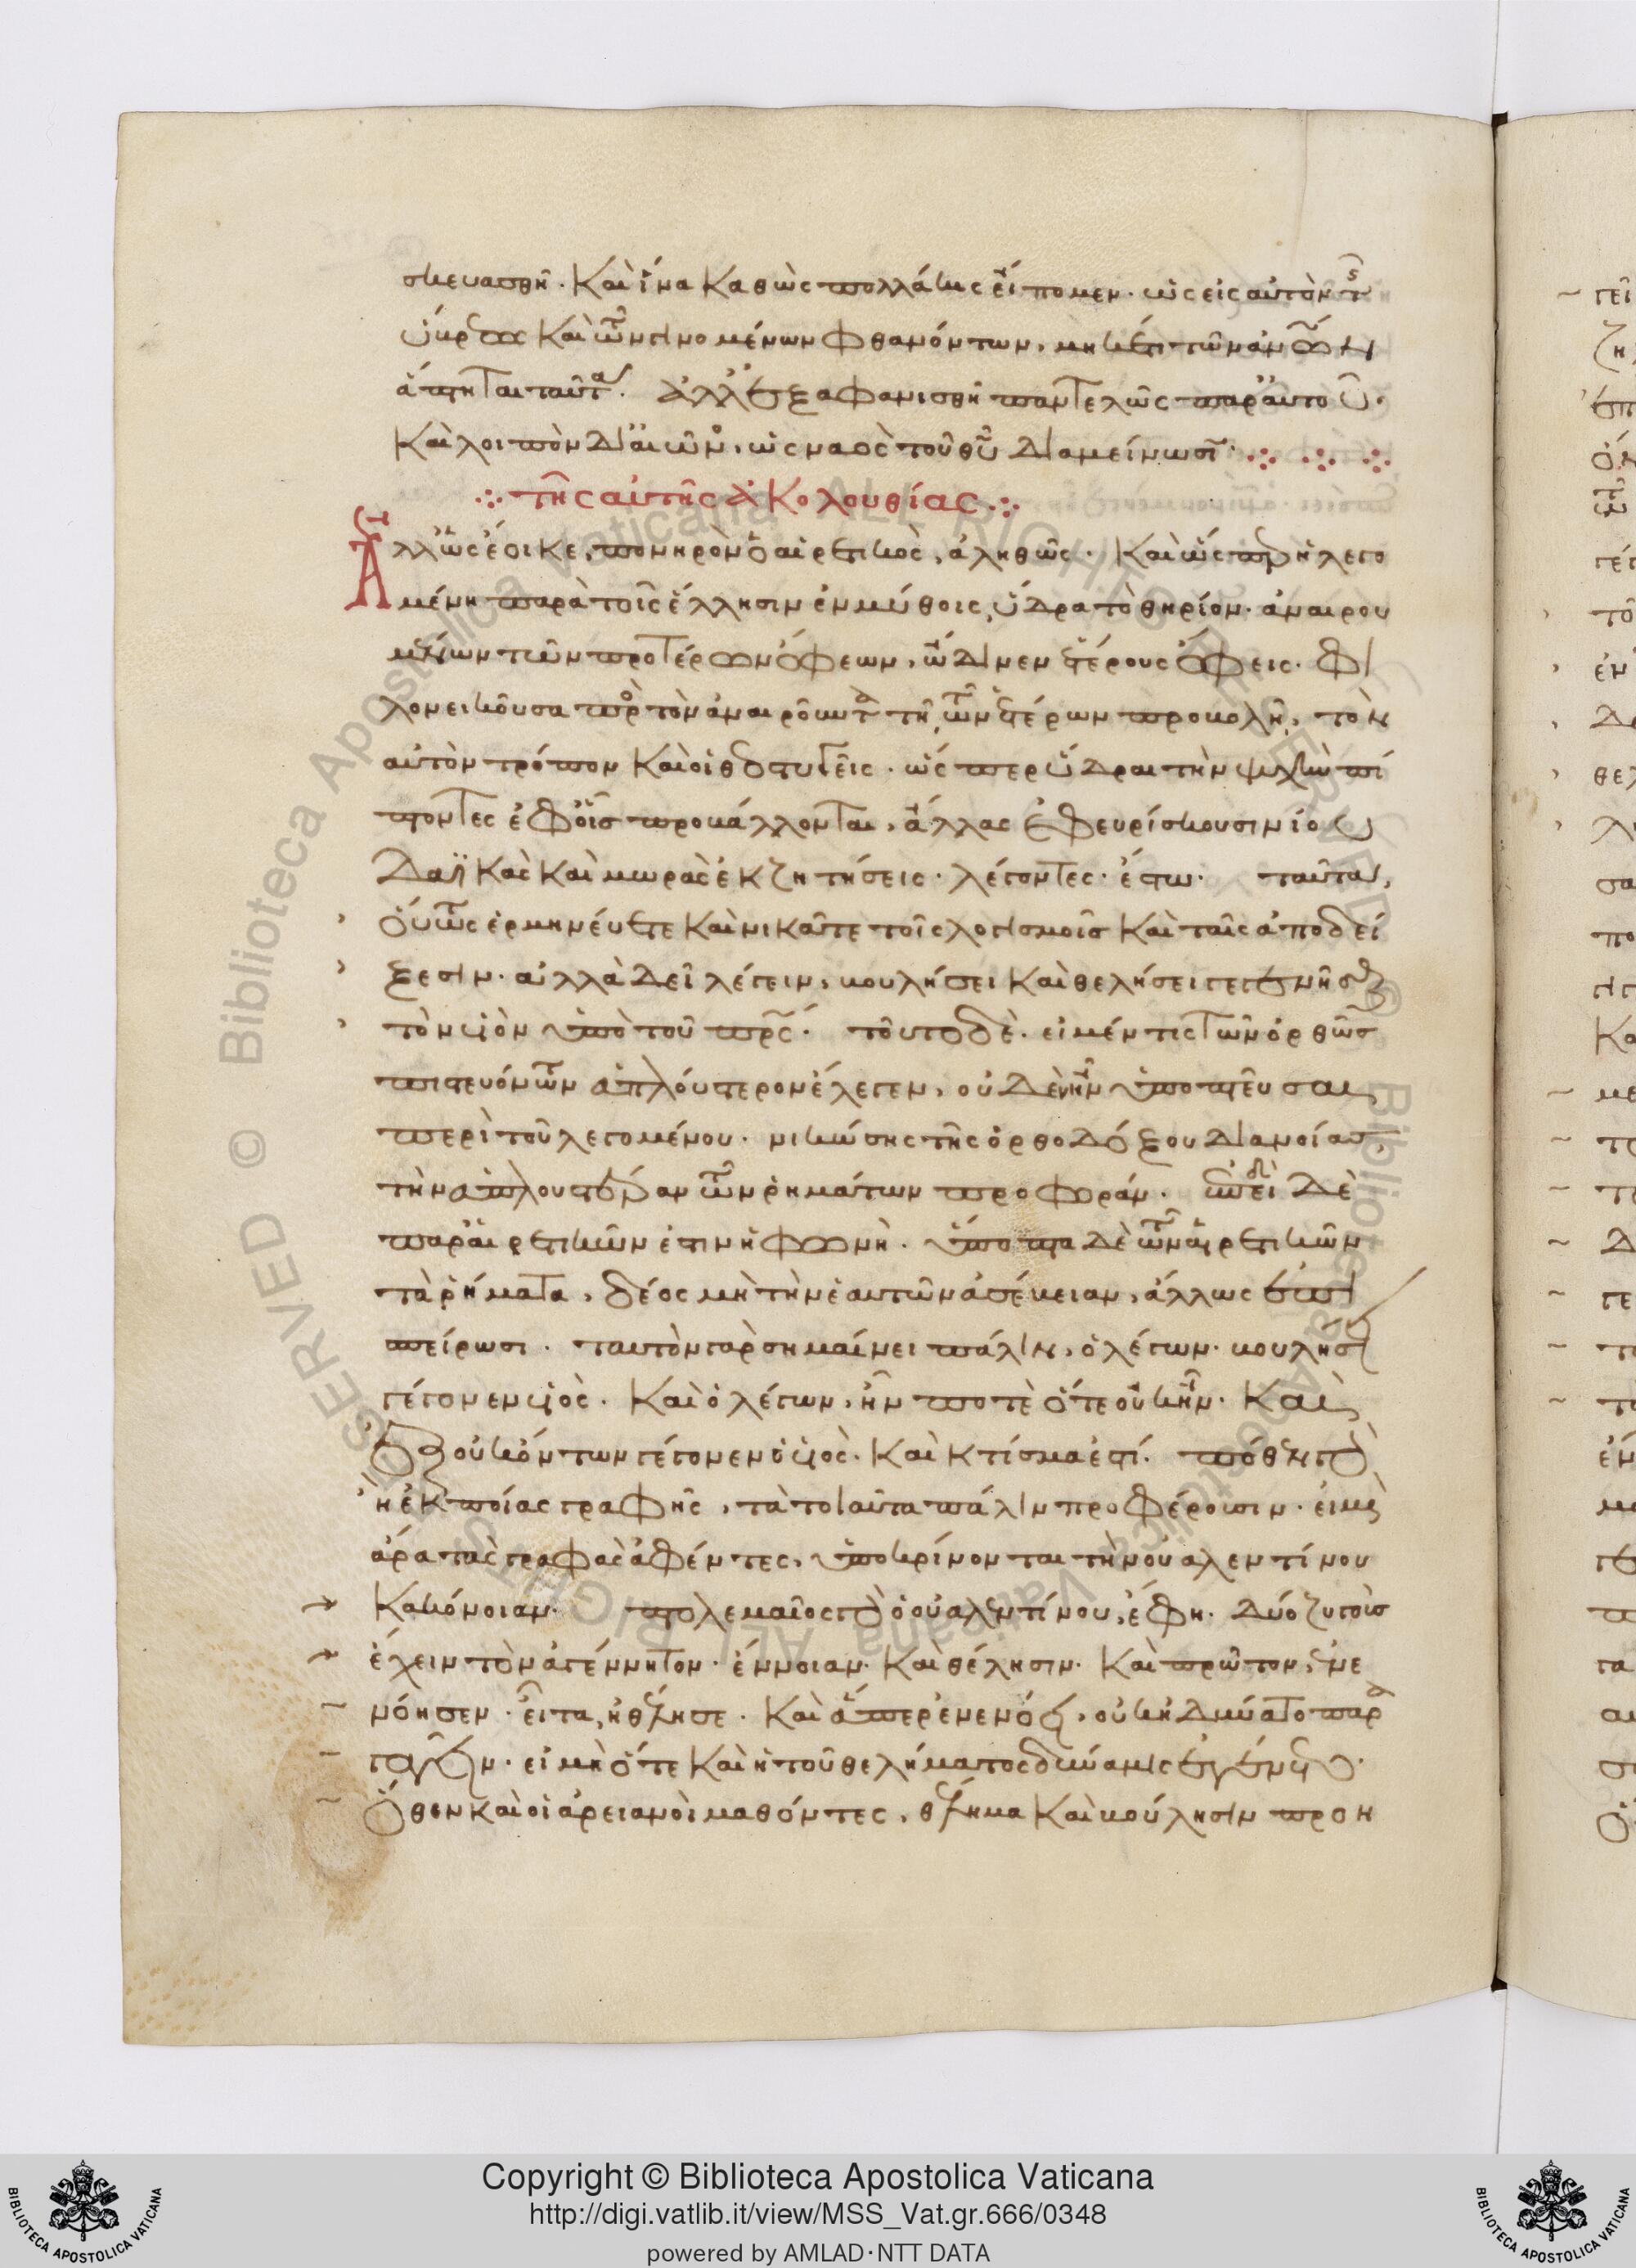 σκευασθῆ. καὶ ἵνα καθὼς πολλάκις εἴπομεν. ὡς εἰς αὐτὸν τ
καὶ τῶν γινομένων φθανόντων,
ἅπτηται ταῦτα. ἀλλ' ἐξαφανισθῆ παντελῶς παρ' αὐτοῦ.
καὶ λοιπὸν δι' αἰῶνος, ὡς ναὸς τοῦ θῦ διαμείνωσι.
τῆς αὐτῆς ἀκολουθίας
Ἀλλ' ὡς ἔοικε, πονηρὸν ὁ αἱρετικὸς, ἀληθῶς. καὶ ὥσπερ ἡ λεγο
μένη παρὰ τοῖς ἕλλησιν ἐν μύθοις, ὕδρα τὸ θηρίον. ἀναιρου
μένων τῶν προτέρων ὄφεων, ὤδινεν ἑτέρους ὄφεις. φι
λονεικοῦσα πρὸς τὸν ἀναιροῦντα τῆ τῶν ἑτέρων προβολῆ, τὸν
αὐτὸν τρόπον καὶ οἱ θεοστυγεῖς. ὥσπερ ὕδραι τὴν ψυχὴν πί
πτοντες ἐφ' οἷς προβάλλονται, ἄλλας ἐφευρίσκουσιν ἰου
δαϊκὰς καὶ μωρὰς ἐκζητήσεις. λέγοντες. ἔστω. ταῦτα,
οὕτως ἑρμηνεύετε καὶ νικᾶτε τοῖς λογισμοῖς καὶ ταῖς ἀποδεί
ξεσιν. ἀλλὰ δεῖ λέγειν, βουλήσει καὶ θελήσει γεγενῆσθαι
τὸν υἱὸν ὑπὸ τοῦ πρς. τοῦτο δὲ. εἰ μέν τις τῶν ὀρθῶς
πιστευόντων ἁπλούστερον ἔλεγεν, οὐδὲν ἦν ὑποπτεῦσαι
περὶ τοῦ λεγομένου. νικώσης τῆς ὀρθοδόξου διανοίας,
τὴν ἁπλουστέραν τῶν ῥημάτων προφοράν. ἐπειδὴ δὲ
παρ' αἱρετικῶν ἐστιν ἡ φωνὴ. ὕποπτα δὲ τῶν αἱρετικῶν
τὰ ῥήματα, δέος μὴ τὴν ἑαυτῶν ἀσέβειαν, ἄλλως ἐπι
σπείρωσι. ταυτὸν γὰρ σημαίνει πάλιν, ὁ λέγων. βουλήσει
γέγονεν υἱὸς. καὶ ὁ λέγων, ἦν ποτὲ ὅτε οὐκ ἦν. καὶ
ἐξ οὐκ ὄντων γέγονεν ὁ υἱὸς. καὶ κτίσμα ἐστί. πόθεν γὰρ
ἢ ἐκ ποίας γραφῆς, τὰ τοιαῦτα πάλιν προφέρουσιν. εἰ μὴ
ἄρα τὰς γραφὰς ἀφέντες, ὑποκρίνονται τὴν οὐαλεντίνου
κακόνοιαν. πτολεμαῖος γὰρ ὁ οὐαλεντίνου, ἔφη. δύο ζυγοὺς
ἔχειν τὸν ἀγέννητον. ἔννοιαν. καὶ θέλησιν. καὶ πρῶτον, ἐνε
νόησεν. εἶτα, ἠθέλησε. καὶ ἅπερ ἐνενόει, οὐκ ἠδύνατο παρα
γαγεῖν. εἰ μὴ ὅτε καὶ ἡ τοῦ θελήματος δύναμις ἐπεγένετο.
Ὅθεν καὶ οἱ ἀρειανοὶ μαθόντες, θέλημα καὶ βούλησιν προη
Copyright © Biblioteca Apostolica Vaticana
http://digi.vatlib.it/view/MSS_Vat.gr.666/0348
powered by AMLAD·NTT DATA